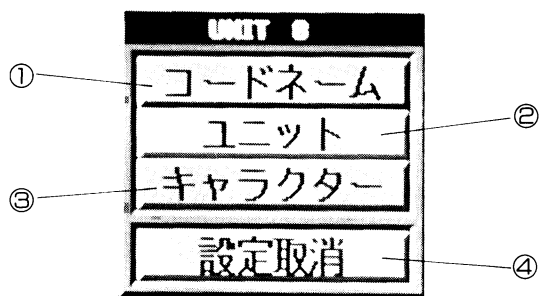 UNIT 8
① コードネーム
ユニット ②
③ キャラクター
設定取消 ④